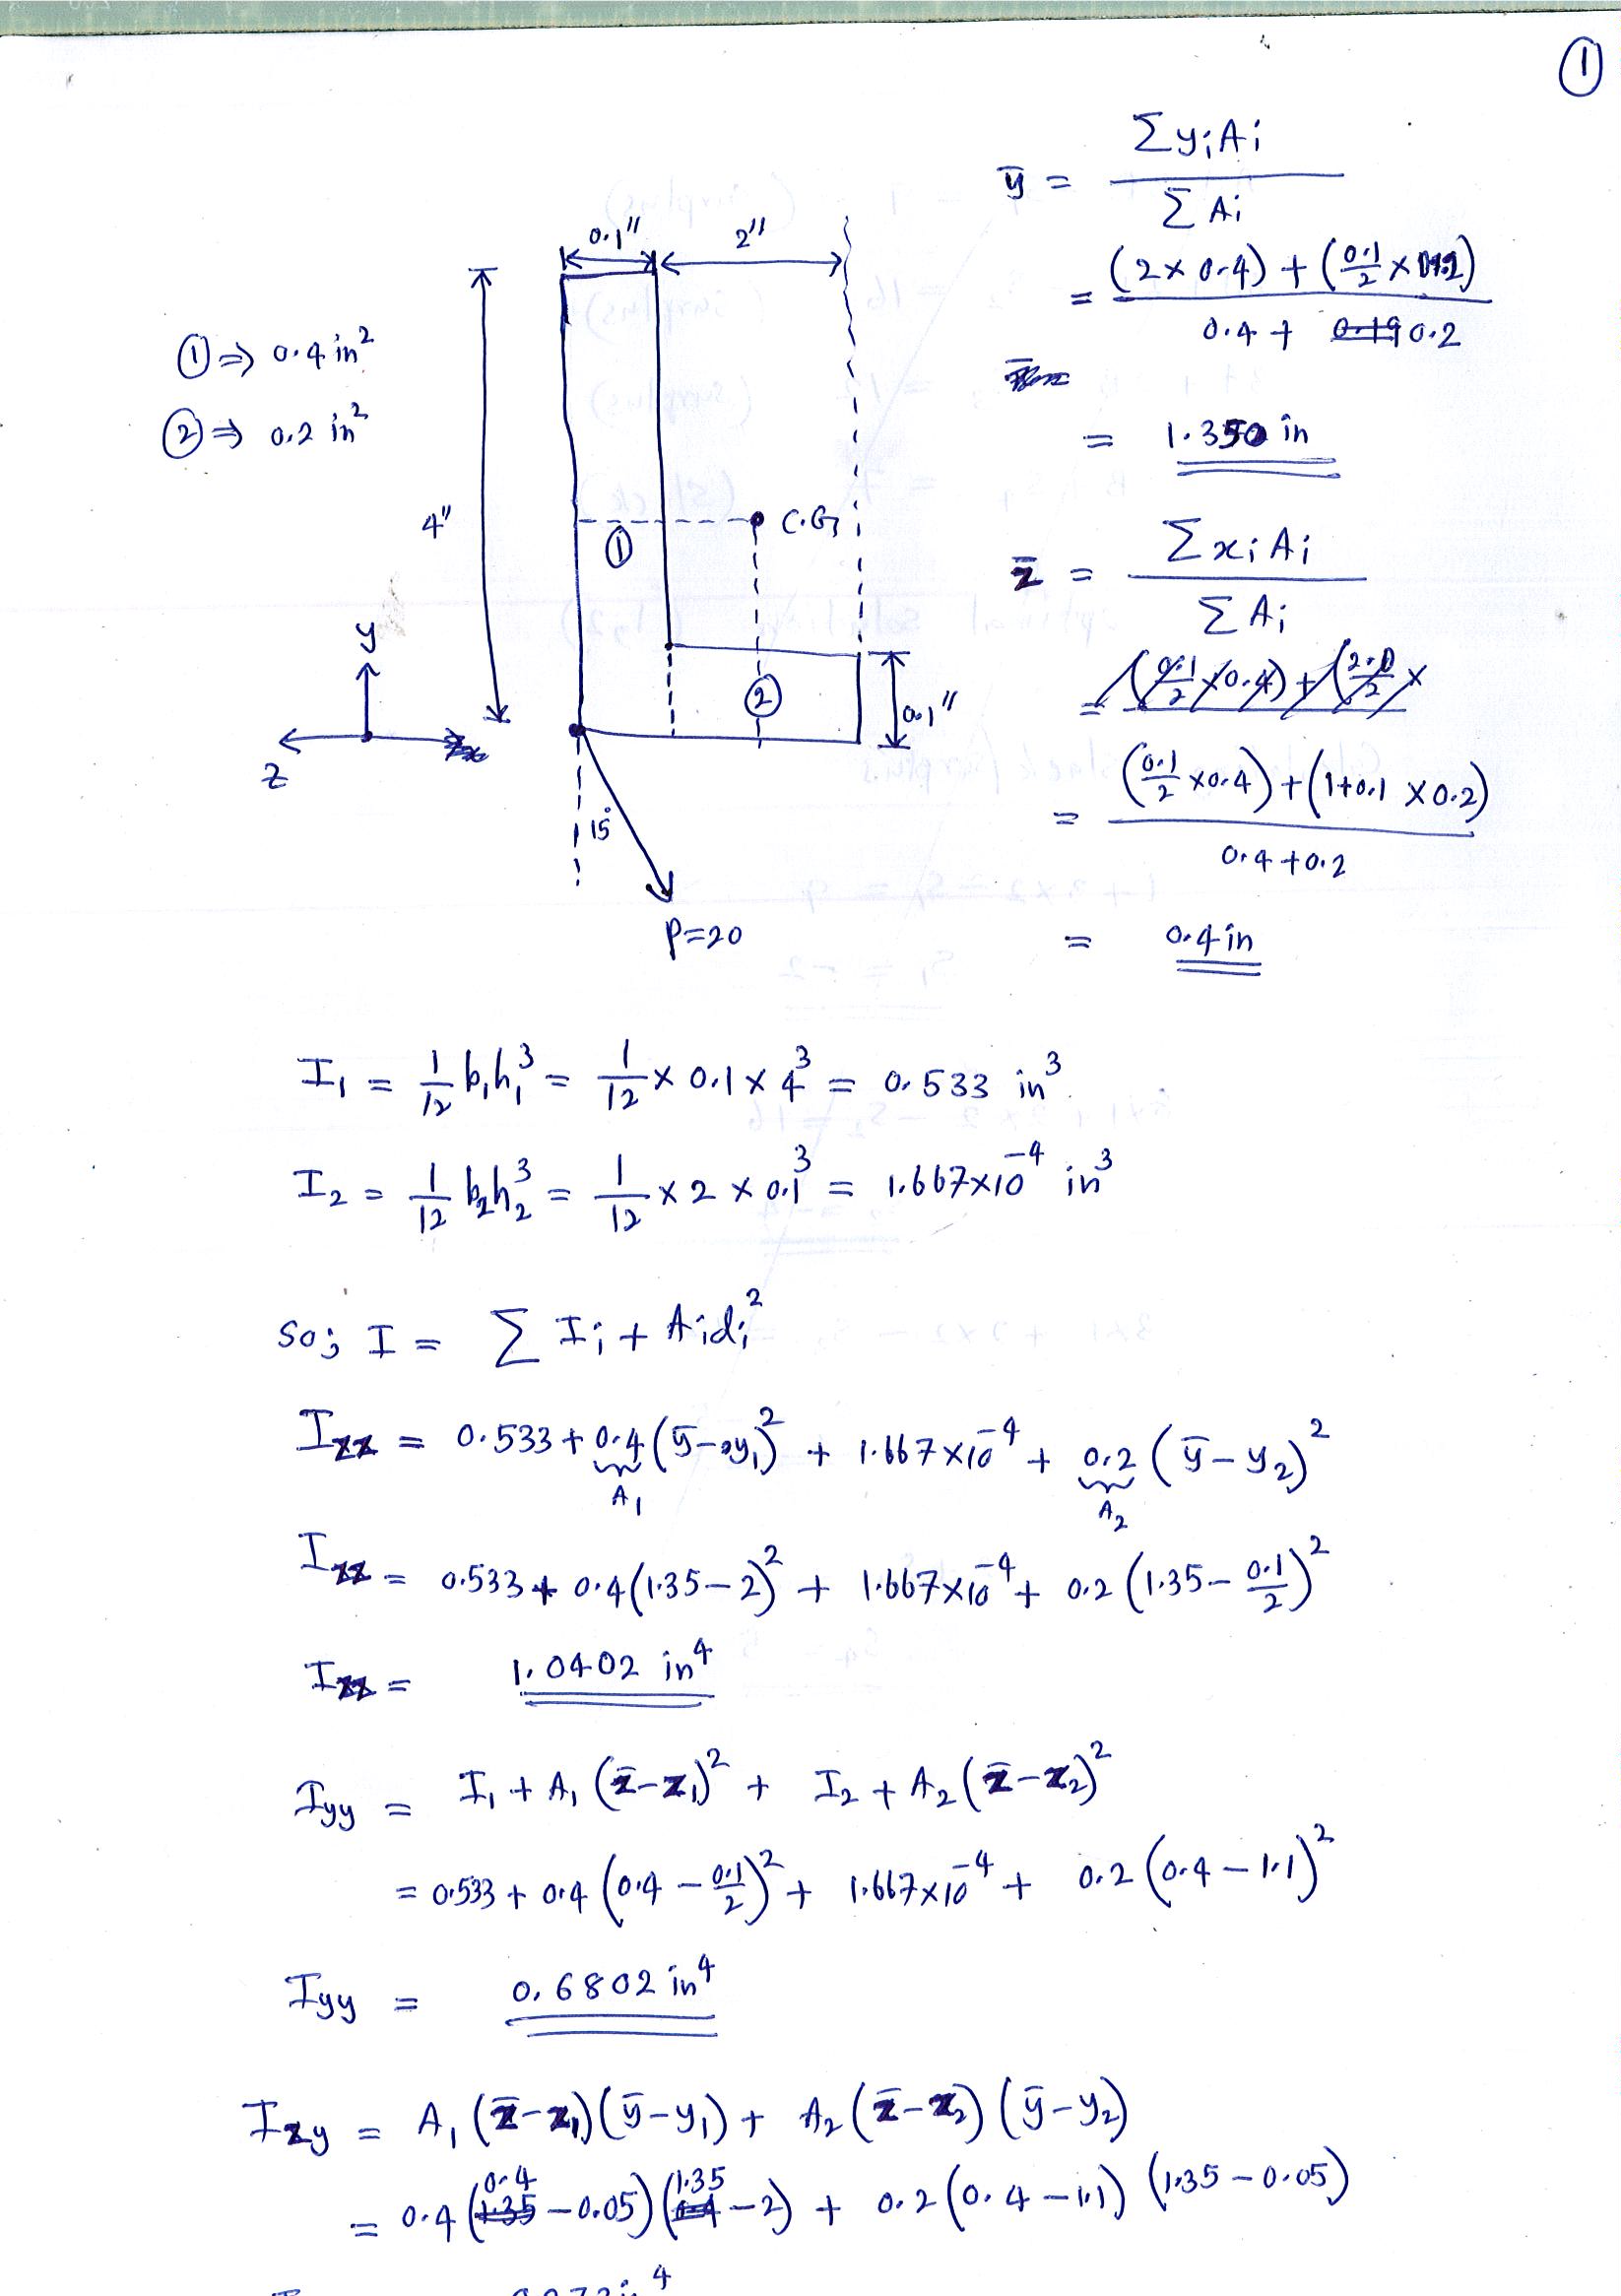 ①
ȳ = Σ yᵢAᵢ / Σ Aᵢ
= (2 × 0.4) + (0.1/2 × 0.2) / 0.4 + 0.2
= 1.350 in
0.1" 2"
① ⇒ 0.4 in²
② ⇒ 0.2 in²
4"
① C.G,
z̄ = Σ xᵢ Aᵢ / Σ Aᵢ
y
z
② 0.1"
= (0.1/2 × 0.4) + (2.0/2 ×
= (0.1/2 × 0.4) + (1+0.1 × 0.2) / 0.4 + 0.2
15°
P=20
= 0.4 in
I₁ = 1/12 b₁h₁³ = 1/12 × 0.1 × 4³ = 0.533 in³
I₂ = 1/12 b₂h₂³ = 1/12 × 2 × 0.1³ = 1.667×10⁻⁴ in³
So; I = Σ Iᵢ + Aᵢdᵢ²
Izz = 0.533 + 0.4 (ȳ - y₁)² + 1.667×10⁻⁴ + 0.2 (ȳ - y₂)²
A₁ A₂
Izz = 0.533 + 0.4(1.35 - 2)² + 1.667×10⁻⁴ + 0.2 (1.35 - 0.1/2)²
Izz = 1.0402 in⁴
Iyy = I₁ + A₁ (z̄ - z₁)² + I₂ + A₂ (z̄ - z₂)²
= 0.533 + 0.4 (0.4 - 0.1/2)² + 1.667×10⁻⁴ + 0.2 (0.4 - 1.1)²
Iyy = 0.6802 in⁴
Izy = A₁ (z̄ - z₁)(ȳ - y₁) + A₂ (z̄ - z₂) (ȳ - y₂)
= 0.4 (0.4 - 0.05)(1.35 - 2) + 0.2 (0.4 - 1.1) (1.35 - 0.05)